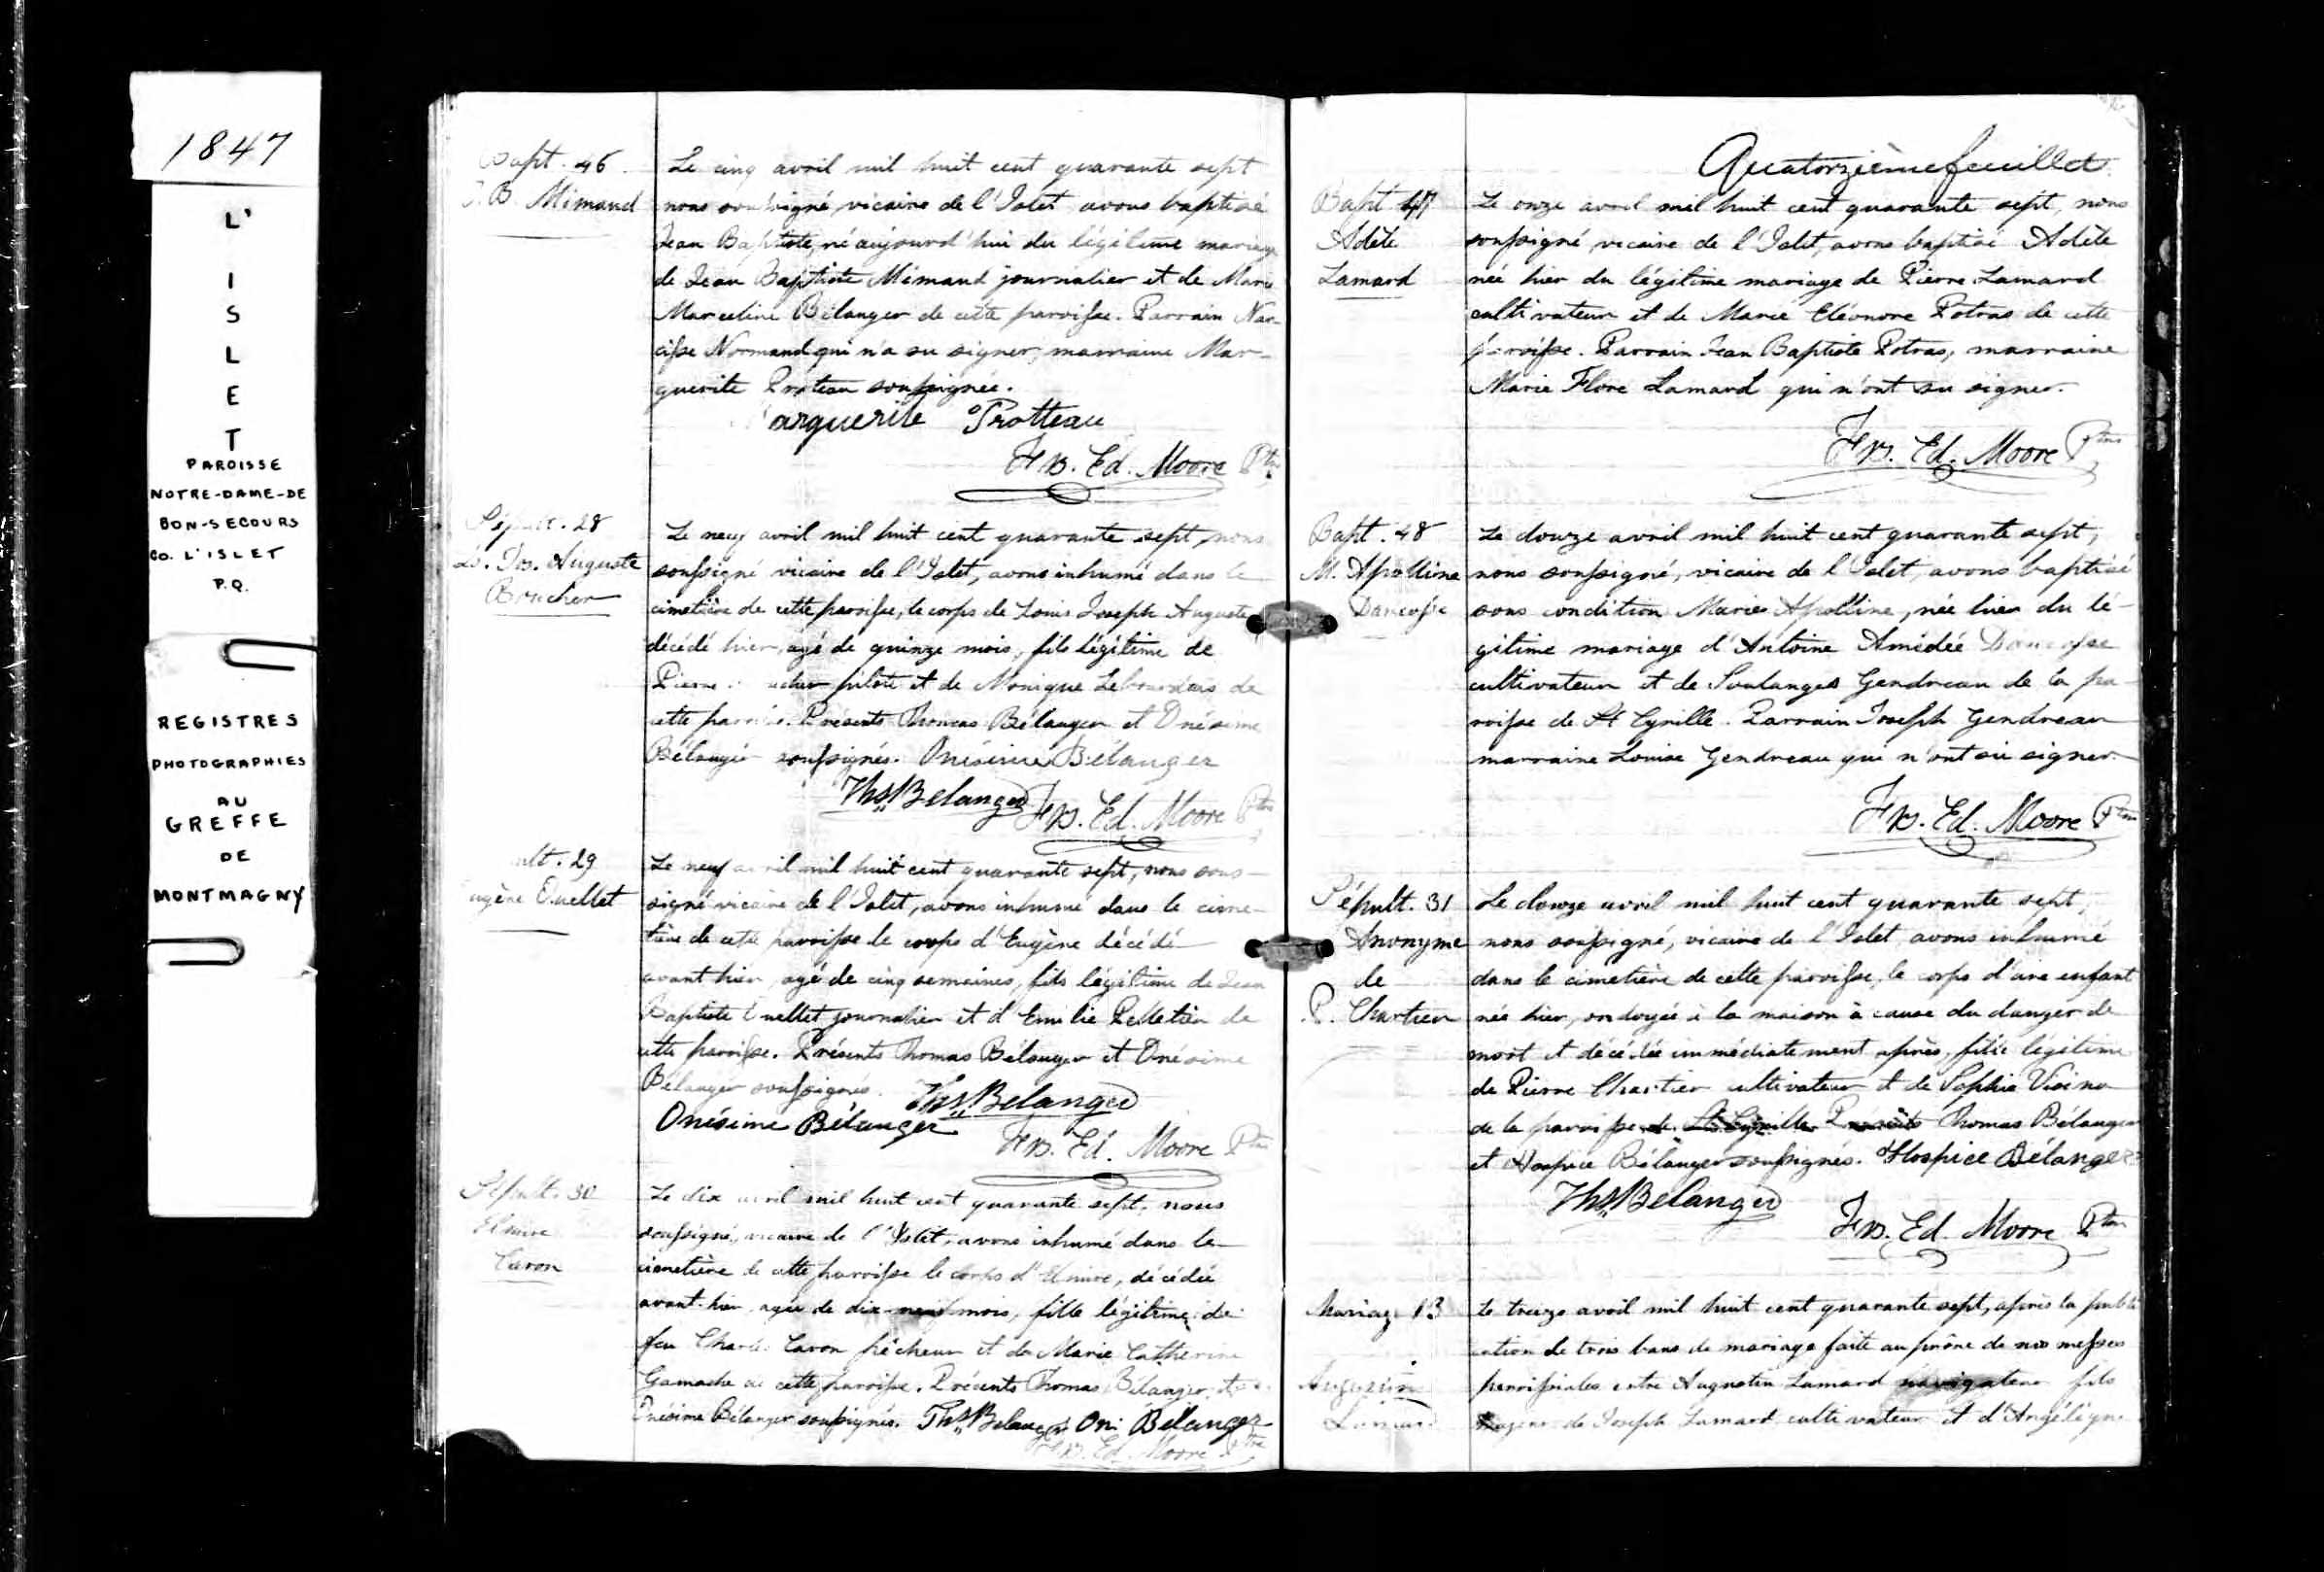 1847
L'
I
S
L
E
T
PAROISSE
NOTRE-DAME-DE
BON-SECOURS
CO. L'ISLET
P.Q.
REGISTRES
PHOTOGRAPHIES
AU
GREFFE
DE
MONTMAGNY
Bapt. 46
J. B. Mimaud
Le cinq avril mil huit cent quarante sept
nous soussigné, vicaire de l'Islet avons baptisé
Jean Baptiste, né aujourd'hui du légitime mariage
de Jean Baptiste Mimaud journalier et de Marie
Marceline Bélanger de cette paroisse. Parrain Nar-
cisse Normand qui n'a su signer, marraine Mar-
guerite Proteau soussignée.
arguerite Protteau
Frs. Ed. Moore Ptre
Sépult. 28
Ls. Jos. Auguste
Brucher
Le neuf avril mil huit cent quarante sept, nous
soussigné vicaire de l'Islet, avons inhumé dans le
cimetière de cette paroisse, le corps de Louis Joseph Auguste
décédé hier, agé de quinze mois, fils légitime de
Pierre pilote et de Monique Lebourdais de
cette paroisse. Présents Thomas Bélanger et Onésime
Bélanger soussignés. Onésime Bélanger
Ths Belanger Frs. Ed. Moore Ptre
ult. 29
ugène Ouellet
Le neuf avril mil huit cent quarante sept, nous sous-
signé vicaire de l'Islet, avons inhumé dans le cime-
tière de cette paroisse le corps d'Eugène décédé
avant hier, agé de cinq semaines, fils légitime de Jean
Baptiste Ouellet journalier et d'Emilie Pelletier de
cette paroisse. Présents Thomas Bélanger et Onésime
Bélanger soussignés. Ths Belanger
Onésime Bélanger
Frs. Ed. Moore Ptre
Sépult. 30
Elmire
Caron
Le dix avril mil huit cent quarante sept, nous
soussigné, vicaire de l'Islet, avons inhumé dans le
cimetière de cette paroisse le corps d'Elmire, décédée
avant-hier, agée de dix-neuf mois, fille légitime de
feu Charles Caron pêcheur et de Marie Catherine
Gamache de cette paroisse. Présents Thomas Bélanger et
Onésime Bélanger soussignés. Ths Belanger Oni Bélanger
Frs. Ed. Moore Ptre
Quatorzième feuillet.
Bapt 47
Adèle
Lamard
Le onze avril mil huit cent quarante sept, nous
soussigné, vicaire de l'Islet, avons baptisé Adèle
née hier du légitime mariage de Pierre Lamard
cultivateur et de Marie Eléonore Potras de cette
paroisse. Parrain Jean Baptiste Potras, marraine
Marie Flore Lamard qui n'ont su signer.
Frs. Ed. Moore Ptre
Bapt. 48
M. Apolline
Dancosse
Le douze avril mil huit cent quarante sept,
nous soussigné, vicaire de l'Islet, avons baptisé
sous condition Marie Apolline, née hier du lé-
gitime mariage d'Antoine Amédée Dancosse
cultivateur et de Soulanges Gendreau de la pa-
roisse de St Cyrille. Parrain Joseph Gendreau
marraine Louise Gendreau qui n'ont su signer.
Frs. Ed. Moore Ptre
Sépult. 31
Anonyme
de
P. Chartier
Le douze avril mil huit cent quarante sept,
nous soussigné, vicaire de l'Islet avons inhumé
dans le cimetière de cette paroisse, le corps d'une enfant
née hier, ondoyée à la maison à cause du danger de
mort et décédée immédiatement après, fille légitime
de Pierre Chartier cultivateur et de Sophie
de la paroisse de St Cyrille Présents Thomas Bélanger
et Hospice Bélanger soussignés. Hospice Bélanger
Ths Belanger
Frs. Ed. Moore Ptre
Mariage 13
Augustin
Lamard
Le treize avril mil huit cent quarante sept, après la publi
cation de trois bans de mariage faite au prône de nos messes
paroissiales entre Augustin Lamard navigateur fils
majeur de Joseph Lamard cultivateur et d'Angélique